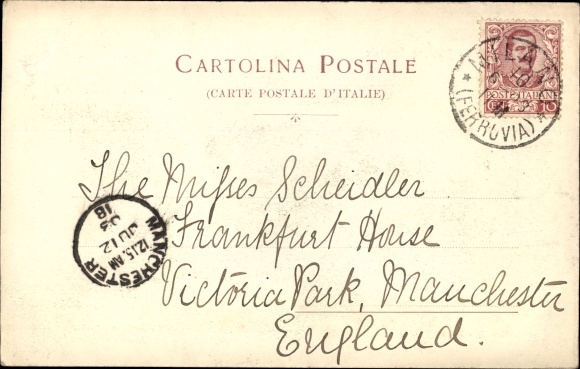 CARTOLINA POSTALE
(CARTE POSTALE D'ITALIE)
POSTE ITALIANE
10
MILANO
(FERROVIA)
The Misses Scheidler
Frankfurt House
Victoria Park, Manchester
England.
MANCHESTER
12.15 AM
JU 12
03
18